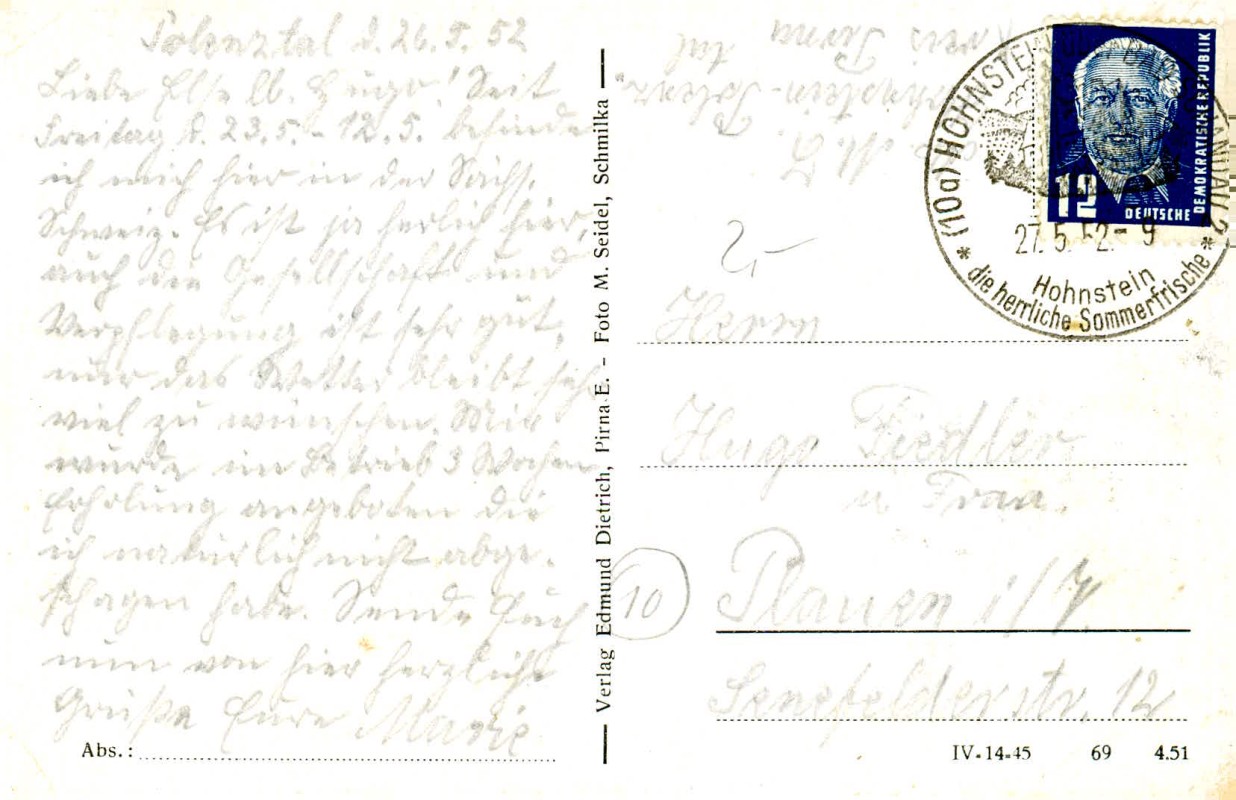 Polenztal d. 26.5.52
Liebe Else lb. Hugo! Seit
Freitag d. 23.5. - 12.5. befinde
ich mich hier in der Sächs.
Schweiz. Es ist ja herrlich hier,
auch die Gesellschaft und
Verpflegung ist sehr gut,
nur das Wetter bleibt sehr
viel zu wünschen. Mir
wurde im Betrieb 3 Wochen
Erholung angeboten die
ich natürlich nicht abge-
schlagen habe. Sende Euch
nun von hier herzliche
Grüße Eure Marie
Abs.:
Verlag Edmund Dietrich, Pirna E. - Foto M. Seidel, Schmilka
Kreis Pirna
Hohnstein-Polenz
tal
(10a) HOHNSTEIN
27.5.52.- 9
Hohnstein
die herrliche Sommerfrische
12
DEUTSCHE
DEMOKRATISCHE REPUBLIK
Herrn
Hugo Fiedler
u Frau.
10
Plauen i/V.
Senefelderstr. 12
IV-14-45 69 4.51